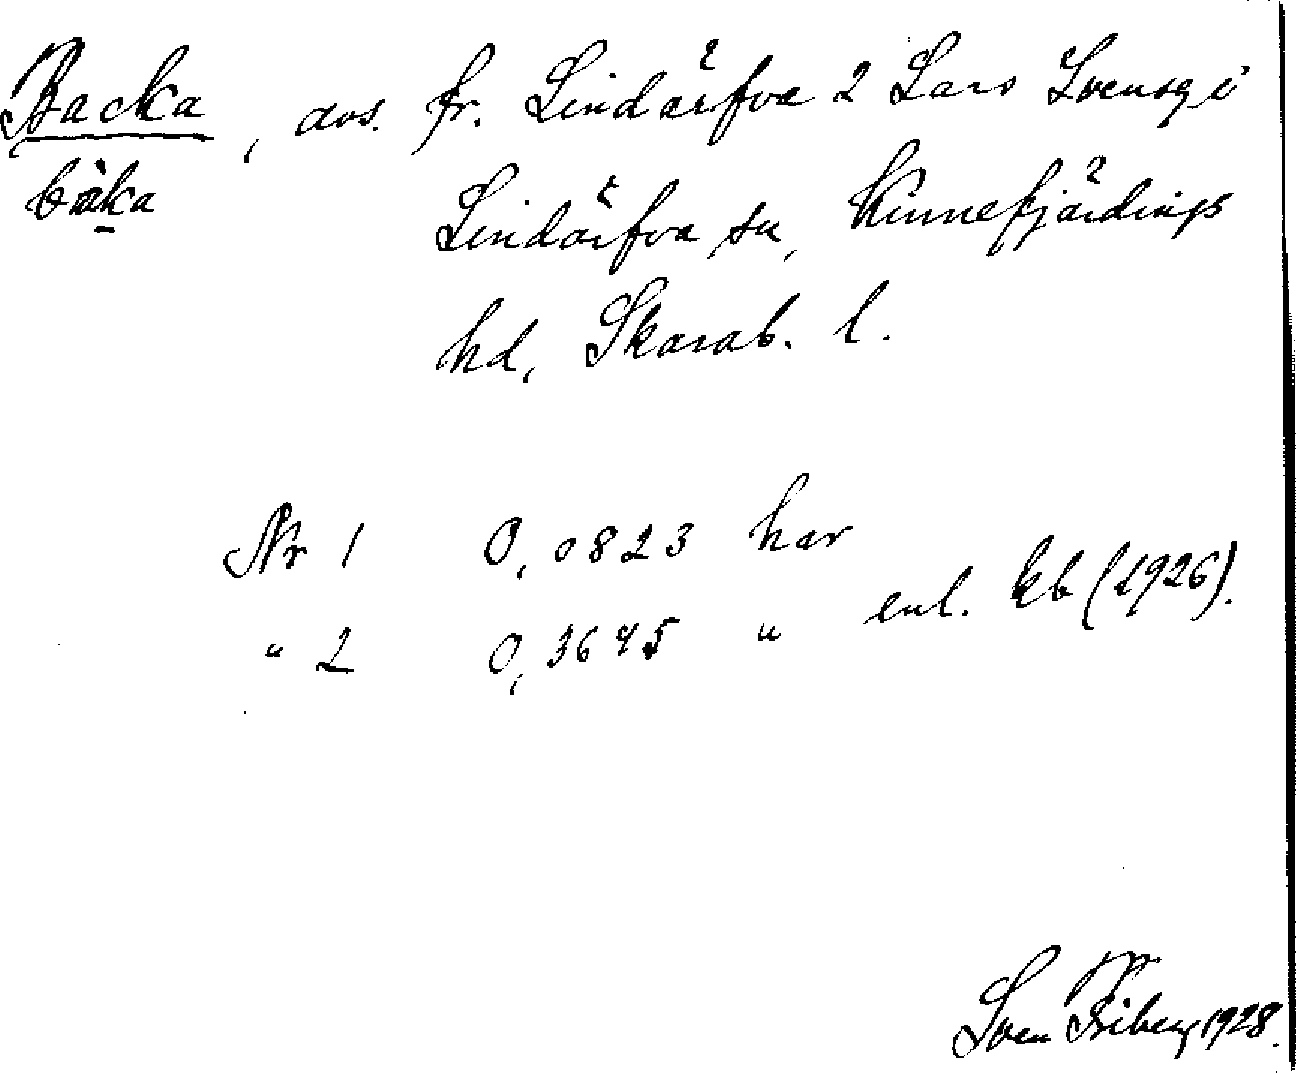 Backa, avs. fr. Lindärfva 2 Lars Svensg i
bàka
Lindärfva sn, Kinnefjärdings
hd, Skarab. l.
Nr 1 0,0823 har
enl. kb (1926).
" 2 0,3645 "
Sven Friberg 1928.